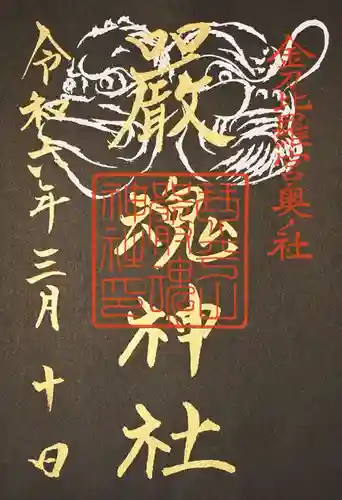 金刀比羅宮奥ノ社
嚴魂神社
令和六年三月十日